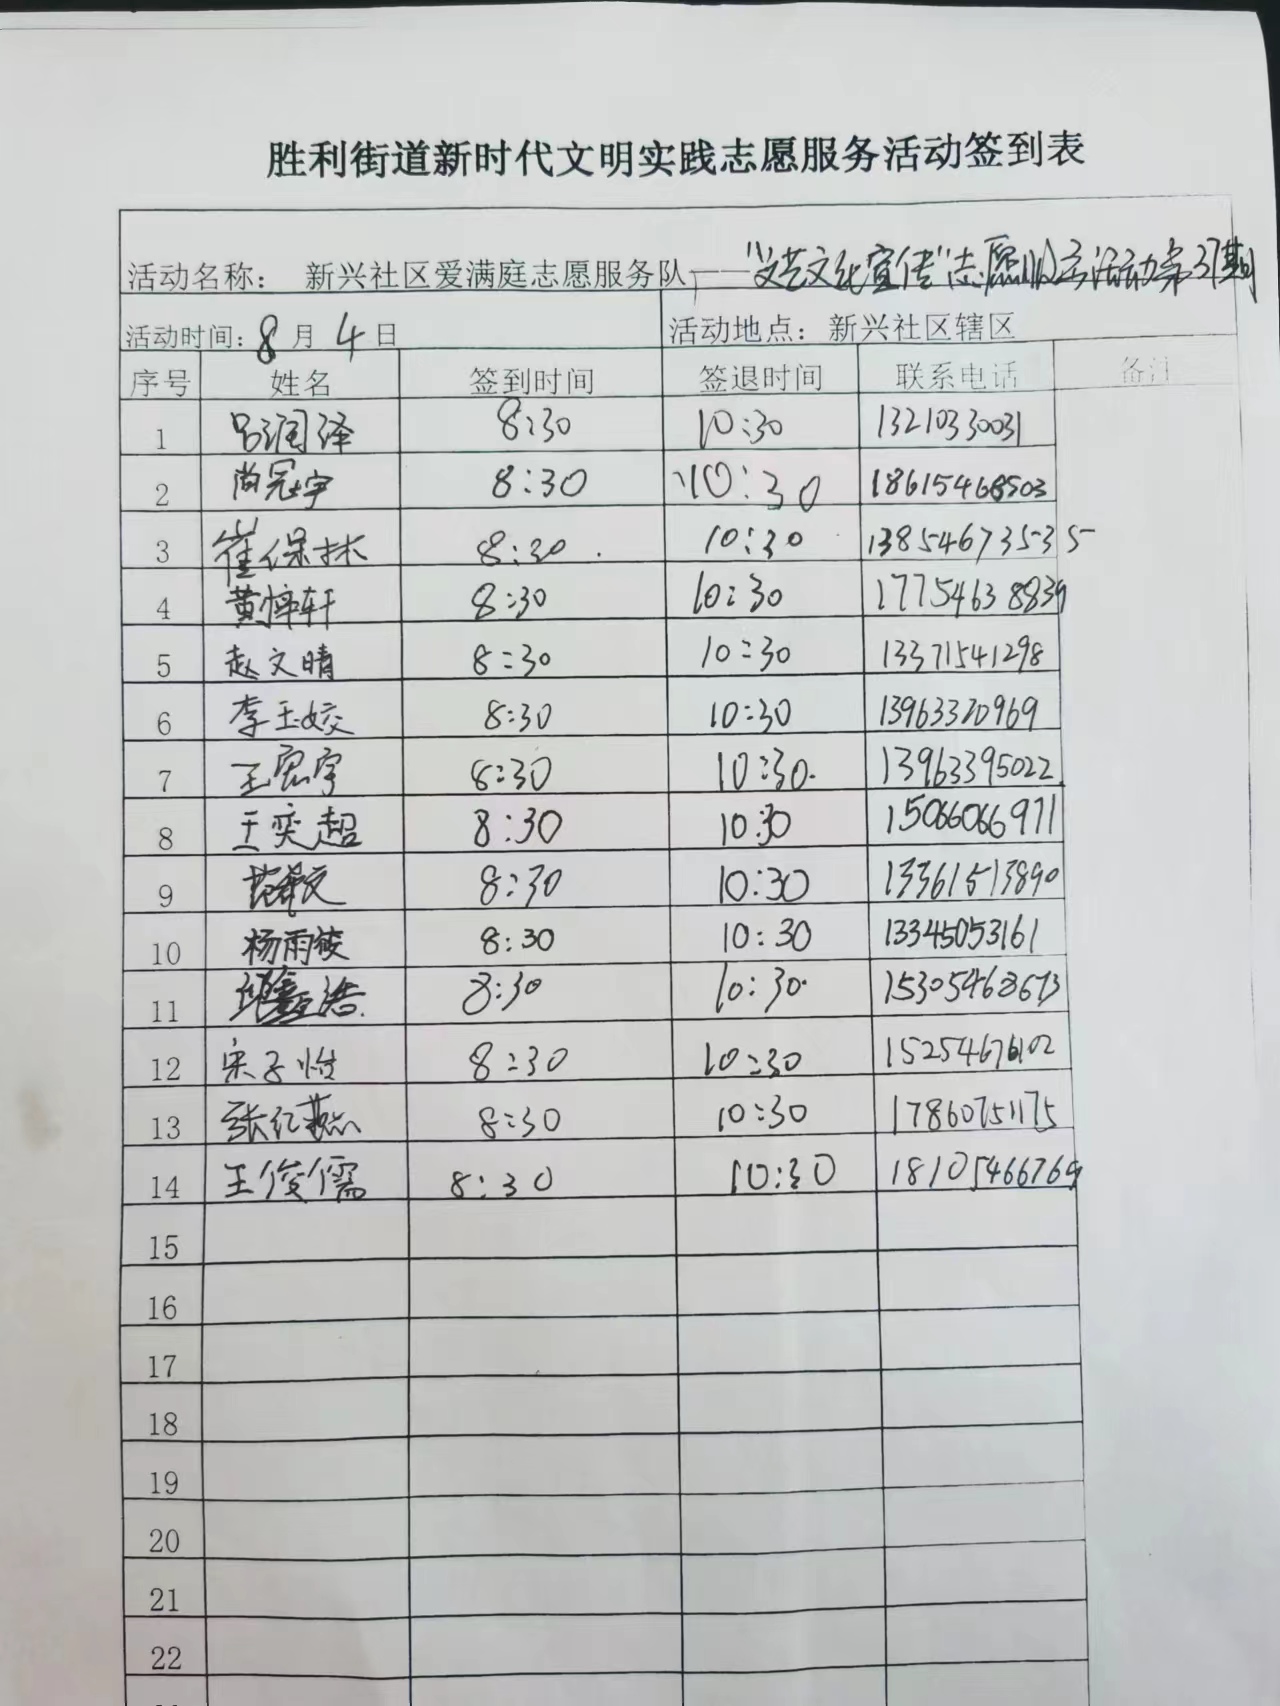 胜利街道新时代文明实践志愿服务活动签到表
活动名称： 新兴社区爱满庭志愿服务队——"文艺文化宣传"志愿服务活动第37期
活动时间：8月4日 活动地点：新兴社区辖区
序号 姓名 签到时间 签退时间 联系电话 备注
1 吕润泽 8:30 10:30 13210330031
2 尚冠宇 8:30 10:30 18615468503
3 崔保林 8:30 10:30 13854673535
4 黄悼轩 8:30 10:30 17754638839
5 赵文晴 8:30 10:30 13371541298
6 李玉姣 8:30 10:30 13963320969
7 王宸宇 8:30 10:30 13963395022
8 王奕超 8:30 10:30 15066066971
9 8:30 10:30 13361513890
10 杨雨筱 8:30 10:30 13345053161
11 8:30 10:30 15305468673
12 宋子怡 8:30 10:30
13 8:30 10:30 17860751175
14 王俊儒 8:30 10:30 18105466769
15
16
17
18
19
20
21
22